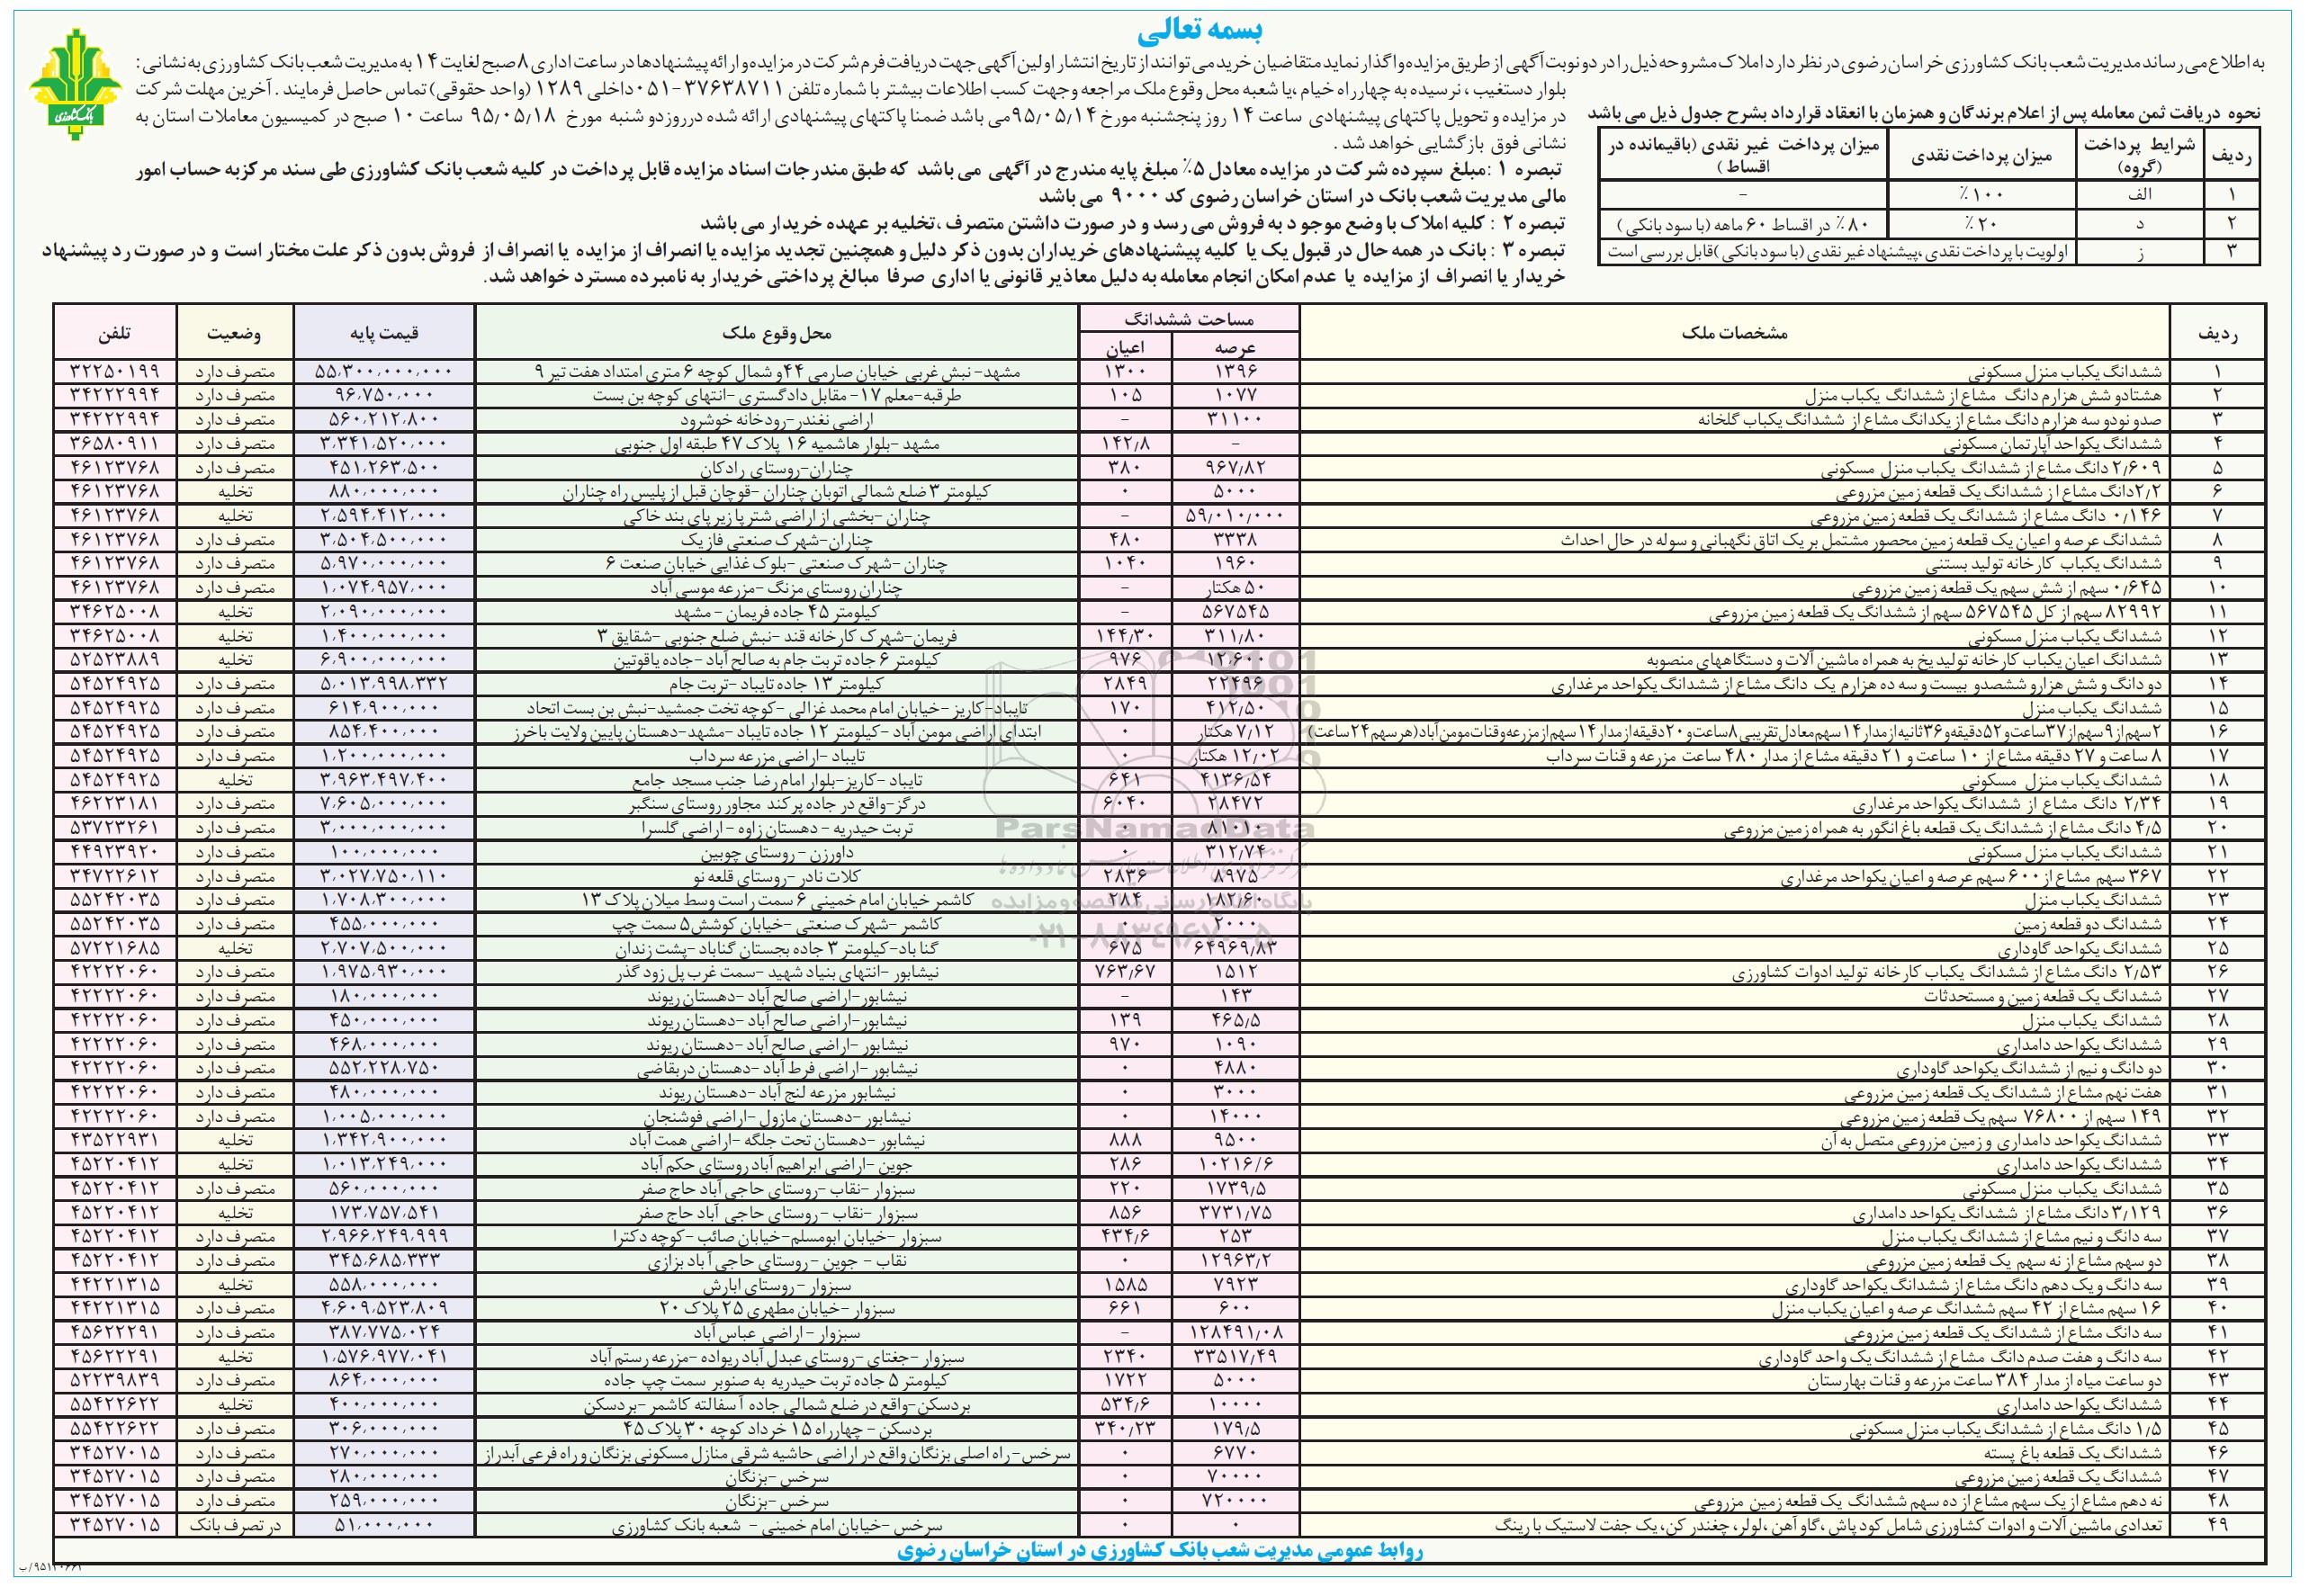 بسمه تعالی
به اطلاع می رساند مدیریت شعب بانک کشاورزی خراسان رضوی در نظر دارد املاک مشروحه ذیل را در دو نوبت آگهی از طریق مزایده واگذار نماید متقاضیان خرید می توانند از تاریخ انتشار اولین آگهی جهت دریافت فرم شرکت در مزایده و ارائه پیشنهادها در ساعت اداری ۸ صبح لغایت ۱۴ به مدیریت شعب بانک کشاورزی به نشانی :
بلوار دستغیب ، نرسیده به چهارراه خیام ،یا شعبه محل وقوع ملک مراجعه وجهت کسب اطلاعات بیشتر با شماره تلفن ۳۷۶۳۸۷۱۱-۰۵۱داخلی ۱۲۸۹ (واحد حقوقی) تماس حاصل فرمایند . آخرین مهلت شرکت
در مزایده و تحویل پاکتهای پیشنهادی ساعت ۱۴ روز پنجشنبه مورخ ۹۵/۰۵/۱۴می باشد ضمنا پاکتهای پیشنهادی ارائه شده درروزدو شنبه مورخ ۹۵/۰۵/۱۸ ساعت ۱۰ صبح در کمیسیون معاملات استان به
نشانی فوق بازگشایی خواهد شد .
تبصره ۱ :مبلغ سپرده شرکت در مزایده معادل ۵٪ مبلغ پایه مندرج در آگهی می باشد که طبق مندرجات اسناد مزایده قابل پرداخت در کلیه شعب بانک کشاورزی طی سند مرکزبه حساب امور
مالی مدیریت شعب بانک در استان خراسان رضوی کد ۹۰۰۰ می باشد
تبصره ۲ : کلیه املاک با وضع موجود به فروش می رسد و در صورت داشتن متصرف ،تخلیه بر عهده خریدار می باشد
تبصره ۳ : بانک در همه حال در قبول یک یا کلیه پیشنهادهای خریداران بدون ذکر دلیل و همچنین تجدید مزایده یا انصراف از مزایده یا انصراف از فروش بدون ذکر علت مختار است و در صورت رد پیشنهاد
خریدار یا انصراف از مزایده یا عدم امکان انجام معامله به دلیل معاذیر قانونی یا اداری صرفا مبالغ پرداختی خریدار به نامبرده مسترد خواهد شد.
نحوه دریافت ثمن معامله پس از اعلام برندگان و همزمان با انعقاد قرارداد بشرح جدول ذیل می باشد
ردیف شرایط پرداخت (گروه) میزان پرداخت نقدی میزان پرداخت غیر نقدی (باقیمانده در اقساط )
۱ الف ۱۰۰٪ -
۲ د ۲۰٪ ۸۰٪ در اقساط ۶۰ ماهه (با سود بانکی )
۳ ز اولویت با پرداخت نقدی ،پیشنهاد غیر نقدی (با سود بانکی )قابل بررسی است
بانک کشاورزی
ردیف مشخصات ملک مساحت ششدانگ عرصه اعیان محل وقوع ملک قیمت پایه وضعیت تلفن
۱ ششدانگ یکباب منزل مسکونی ۱۳۹۶ ۱۳۰۰ مشهد- نبش غربی خیابان صارمی ۴۴و شمال کوچه ۶ متری امتداد هفت تیر ۹ ۵۵،۳۰۰،۰۰۰،۰۰۰ متصرف دارد ۳۲۲۵۰۱۹۹
۲ هشتادو شش هزارم دانگ مشاع از ششدانگ یکباب منزل ۱۰۷۷ ۱۰۵ طرقبه-معلم ۱۷- مقابل دادگستری -انتهای کوچه بن بست ۹۶،۷۵۰،۰۰۰ متصرف دارد ۳۴۲۲۲۹۹۴
۳ صدو نودو سه هزارم دانگ مشاع از یکدانگ مشاع از ششدانگ یکباب گلخانه ۳۱۱۰۰ - اراضی نغندر-رودخانه خوشرود ۵۶۰،۲۱۲،۸۰۰ متصرف دارد ۳۴۲۲۲۹۹۴
۴ ششدانگ یکواحد آپارتمان مسکونی - ۱۴۲/۸ مشهد -بلوار هاشمیه ۱۶ پلاک ۴۷ طبقه اول جنوبی ۳،۳۴۱،۵۲۰،۰۰۰ متصرف دارد ۳۶۵۸۰۹۱۱
۵ ۲/۶۰۹ دانگ مشاع از ششدانگ یکباب منزل مسکونی ۹۶۷/۸۲ ۳۸۰ چناران-روستای رادکان ۴۵۱،۲۶۳،۵۰۰ متصرف دارد ۴۶۱۲۳۷۶۸
۶ ۲/۲دانگ مشاع از ششدانگ یک قطعه زمین مزروعی ۵۰۰۰ ۰ کیلومتر ۳ ضلع شمالی اتوبان چناران -قوچان قبل از پلیس راه چناران ۸۸۰،۰۰۰،۰۰۰ تخلیه ۴۶۱۲۳۷۶۸
۷ ۰/۱۴۶ دانگ مشاع از ششدانگ یک قطعه زمین مزروعی ۵۹/۰۱۰/۰۰۰ - چناران -بخشی از اراضی شتر پا زیر پای بند خاکی ۲،۵۹۴،۴۱۲،۰۰۰ تخلیه ۴۶۱۲۳۷۶۸
۸ ششدانگ عرصه و اعیان یک قطعه زمین محصور مشتمل بر یک اتاق نگهبانی و سوله در حال احداث ۳۳۳۸ ۴۸۰ چناران-شهرک صنعتی فاز یک ۳،۵۰۴،۵۰۰،۰۰۰ متصرف دارد ۴۶۱۲۳۷۶۸
۹ ششدانگ یکباب کارخانه تولید بستنی ۱۹۶۰ ۱۰۴۰ چناران -شهرک صنعتی -بلوک غذایی خیابان صنعت ۶ ۵،۹۷۰،۰۰۰،۰۰۰ متصرف دارد ۴۶۱۲۳۷۶۸
۱۰ ۰/۶۴۵ سهم از شش سهم یک قطعه زمین مزروعی ۵۰ هکتار - چناران روستای مزنگ -مزرعه موسی آباد ۱،۰۷۴،۹۵۷،۰۰۰ متصرف دارد ۴۶۱۲۳۷۶۸
۱۱ ۸۲۹۹۲ سهم از کل ۵۶۷۵۴۵ سهم از ششدانگ یک قطعه زمین مزروعی ۵۶۷۵۴۵ - کیلومتر ۴۵ جاده فریمان - مشهد ۲،۰۹۰،۰۰۰،۰۰۰ تخلیه ۳۴۶۲۵۰۰۸
۱۲ ششدانگ یکباب منزل مسکونی ۳۱۱/۸۰ ۱۴۴/۳۰ فریمان-شهرک کارخانه قند -نبش ضلع جنوبی -شقایق ۳ ۱،۴۰۰،۰۰۰،۰۰۰ تخلیه ۳۴۶۲۵۰۰۸
۱۳ ششدانگ اعیان یکباب کارخانه تولید یخ به همراه ماشین آلات و دستگاههای منصوبه ۱۲،۶۰۰ ۹۷۶ کیلومتر ۶ جاده تربت جام به صالح آباد -جاده یاقوتین ۶،۹۰۰،۰۰۰،۰۰۰ تخلیه ۵۲۵۲۳۸۸۹
۱۴ دو دانگ و شش هزارو ششصدو بیست و سه ده هزارم یک دانگ مشاع از ششدانگ یکواحد مرغداری ۲۲۴۹۶ ۲۸۴۹ کیلومتر ۱۳ جاده تایباد-تربت جام ۵،۰۱۳،۹۹۸،۳۳۲ متصرف دارد ۵۴۵۲۴۹۲۵
۱۵ ششدانگ یکباب منزل ۴۱۲/۵۰ ۱۷۰ تایباد-کاریز -خیابان امام محمد غزالی -کوچه تخت جمشید-نبش بن بست اتحاد ۶۱۴،۹۰۰،۰۰۰ متصرف دارد ۵۴۵۲۴۹۲۵
۱۶ ۲سهم از۹سهم از۳۷ساعت و۵۲دقیقه و۳۶ثانیه ازمدار۱۴سهم معادل تقریبی۸ساعت و۲۰دقیقه ازمدار۱۴سهم ازمزرعه وقنات مومن آباد(هرسهم۲۴ساعت) ۷/۱۲ هکتار ۰ ابتدای اراضی مومن آباد -کیلومتر ۱۲ جاده تایباد -مشهد-دهستان پایین ولایت باخرز ۸۵۴،۴۰۰،۰۰۰ متصرف دارد ۵۴۵۲۴۹۲۵
۱۷ ۸ ساعت و ۲۷ دقیقه مشاع از ۱۰ ساعت و ۲۱ دقیقه مشاع از مدار ۴۸۰ ساعت مزرعه و قنات سرداب ۱۲/۰۲ هکتار ۰ تایباد -اراضی مزرعه سرداب ۱،۲۰۰،۰۰۰،۰۰۰ متصرف دارد ۵۴۵۲۴۹۲۵
۱۸ ششدانگ یکباب منزل مسکونی ۴۱۳۶/۵۴ ۶۴۱ تایباد -کاریز-بلوار امام رضا جنب مسجد جامع ۳،۹۶۳،۴۹۷،۴۰۰ تخلیه ۵۴۵۲۴۹۲۵
۱۹ ۲/۳۴ دانگ مشاع از ششدانگ یکواحد مرغداری ۲۸۴۷۲ ۶۰۴۰ درگز-واقع در جاده پرکند مجاور روستای سنگبر ۷،۶۰۵،۰۰۰،۰۰۰ متصرف دارد ۴۶۲۲۳۱۸۱
۲۰ ۴/۵ دانگ مشاع از ششدانگ یک قطعه باغ انگور به همراه زمین مزروعی ۸۱۰۱۰ ۰ تربت حیدریه - دهستان زاوه - اراضی گلسرا ۳،۰۰۰،۰۰۰،۰۰۰ متصرف دارد ۵۳۷۲۳۲۶۱
۲۱ ششدانگ یکباب منزل مسکونی ۳۱۲/۷۴ ۰ داورزن - روستای چوبین ۱۰۰،۰۰۰،۰۰۰ متصرف دارد ۴۴۹۲۳۹۲۰
۲۲ ۳۶۷ سهم مشاع از۶۰۰ سهم عرصه و اعیان یکواحد مرغداری ۸۹۷۵ ۲۸۳۶ کلات نادر-روستای قلعه نو ۳،۰۲۷،۷۵۰،۱۱۰ متصرف دارد ۳۴۷۲۲۶۱۲
۲۳ ششدانگ یکباب منزل ۱۸۲/۶۰ ۲۸۴ کاشمر خیابان امام خمینی ۶ سمت راست وسط میلان پلاک ۱۳ ۱،۷۰۸،۳۰۰،۰۰۰ متصرف دارد ۵۵۲۴۲۰۳۵
۲۴ ششدانگ دو قطعه زمین ۲۰۰۰ ۰ کاشمر -شهرک صنعتی -خیابان کوشش۵ سمت چپ ۴۵۵،۰۰۰،۰۰۰ متصرف دارد ۵۵۲۴۲۰۳۵
۲۵ ششدانگ یکواحد گاوداری ۶۴۹۶۹/۸۳ ۶۷۵ گناباد-کیلومتر ۳ جاده بجستان گناباد-پشت زندان ۲،۷۰۷،۵۰۰،۰۰۰ تخلیه ۵۷۲۲۱۶۸۵
۲۶ ۲/۵۳ دانگ مشاع از ششدانگ یکباب کارخانه تولید ادوات کشاورزی ۱۵۱۲ ۷۶۳/۶۷ نیشابور -انتهای بنیاد شهید -سمت غرب پل زود گذر ۱،۹۷۵،۹۳۰،۰۰۰ متصرف دارد ۴۲۲۲۲۰۶۰
۲۷ ششدانگ یک قطعه زمین و مستحدثات ۱۴۳ - نیشابور-اراضی صالح آباد -دهستان ریوند ۱۸۰،۰۰۰،۰۰۰ متصرف دارد ۴۲۲۲۲۰۶۰
۲۸ ششدانگ یکباب منزل ۴۶۵/۵ ۱۳۹ نیشابور-اراضی صالح آباد -دهستان ریوند ۴۵۰،۰۰۰،۰۰۰ متصرف دارد ۴۲۲۲۲۰۶۰
۲۹ ششدانگ یکواحد دامداری ۱۰۹۰ ۹۷۰ نیشابور -اراضی صالح آباد -دهستان ریوند ۴۶۸،۰۰۰،۰۰۰ متصرف دارد ۴۲۲۲۲۰۶۰
۳۰ دو دانگ و نیم از ششدانگ یکواحد گاوداری ۴۸۸۰ ۰ نیشابور -اراضی فرط آباد -دهستان دربقاضی ۵۵۲،۲۲۸،۷۵۰ متصرف دارد ۴۲۲۲۲۰۶۰
۳۱ هفت نهم مشاع از ششدانگ یک قطعه زمین مزروعی ۳۰۰۰ ۰ نیشابور مزرعه لنج آباد -دهستان ریوند ۴۸۰،۰۰۰،۰۰۰ متصرف دارد ۴۲۲۲۲۰۶۰
۳۲ ۱۴۹ سهم از ۷۶۸۰۰ سهم یک قطعه زمین مزروعی ۱۴۰۰۰ ۰ نیشابور -دهستان مازول -اراضی فوشنجان ۱،۰۰۵،۰۰۰،۰۰۰ متصرف دارد ۴۲۲۲۲۰۶۰
۳۳ ششدانگ یکواحد دامداری و زمین مزروعی متصل به آن ۹۵۰۰ ۸۸۸ نیشابور -دهستان تحت جلگه -اراضی همت آباد ۱،۳۴۲،۹۰۰،۰۰۰ تخلیه ۴۳۵۲۲۹۳۱
۳۴ ششدانگ یکواحد دامداری ۱۰۲۱۶/۶ ۲۸۶ جوین -اراضی ابراهیم آباد روستای حکم آباد ۱،۰۱۳،۲۴۹،۰۰۰ تخلیه ۴۵۲۲۰۴۱۲
۳۵ ششدانگ یکباب منزل مسکونی ۱۷۳۹/۵ ۲۲۰ سبزوار -نقاب -روستای حاجی آباد حاج صفر ۵۶۰،۰۰۰،۰۰۰ متصرف دارد ۴۵۲۲۰۴۱۲
۳۶ ۳/۱۲۹دانگ مشاع از ششدانگ یکواحد دامداری ۳۷۳۱/۷۵ ۸۵۶ سبزوار -نقاب - روستای حاجی آباد حاج صفر ۱۷۳،۷۵۷،۵۴۱ تخلیه ۴۵۲۲۰۴۱۲
۳۷ سه دانگ و نیم مشاع از ششدانگ یکباب منزل ۲۵۳ ۴۳۴/۶ سبزوار -خیابان ابومسلم-خیابان صائب -کوچه دکترا ۲،۹۶۶،۲۴۹،۹۹۹ متصرف دارد ۴۵۲۲۰۴۱۲
۳۸ دو سهم مشاع از نه سهم یک قطعه زمین مزروعی ۱۲۹۶۳/۲ ۰ نقاب - جوین - روستای حاجی آباد بزازی ۳۴۵،۶۸۵،۳۳۳ متصرف دارد ۴۵۲۲۰۴۱۲
۳۹ سه دانگ و یک دهم دانگ مشاع از ششدانگ یکواحد گاوداری ۷۹۲۳ ۱۵۸۵ سبزوار - روستای ابارش ۵۵۸،۰۰۰،۰۰۰ تخلیه ۴۴۲۲۱۳۱۵
۴۰ ۱۶ سهم مشاع از ۴۲ سهم ششدانگ عرصه و اعیان یکباب منزل ۶۰۰ ۶۶۱ سبزوار -خیابان مطهری ۲۵ پلاک ۲۰ ۴،۶۰۹،۵۲۳،۸۰۹ متصرف دارد ۴۴۲۲۱۳۱۵
۴۱ سه دانگ مشاع از ششدانگ یک قطعه زمین مزروعی ۱۲۸۴۹۱/۰۸ - سبزوار - اراضی عباس آباد ۳۸۷،۷۷۵،۰۲۴ متصرف دارد ۴۵۶۲۲۲۹۱
۴۲ سه دانگ و هفت صدم دانگ مشاع از ششدانگ یک واحد گاوداری ۳۳۵۱۷/۴۹ ۲۳۴۰ سبزوار -جغتای -روستای عبدل آباد ریواده -مزرعه رستم آباد ۱،۵۷۶،۹۷۷،۰۴۱ تخلیه ۴۵۶۲۲۲۹۱
۴۳ دو ساعت میاه از مدار ۳۸۴ ساعت مزرعه و قنات بهارستان ۵۰۰۰ ۱۷۲۲ کیلومتر ۵ جاده تربت حیدریه به صنوبر سمت چپ جاده ۸۶۴،۰۰۰،۰۰۰ متصرف دارد ۵۲۲۳۹۸۳۹
۴۴ ششدانگ یکواحد دامداری ۱۰۰۰۰ ۵۳۴/۶ بردسکن-واقع در ضلع شمالی جاده آسفالته کاشمر -بردسکن ۴۰۰،۰۰۰،۰۰۰ تخلیه ۵۵۴۲۲۶۲۲
۴۵ ۱/۵ دانگ مشاع از ششدانگ یکباب منزل مسکونی ۱۷۹/۵ ۳۴۰/۲۳ بردسکن - چهارراه ۱۵ خرداد کوچه ۳۰ پلاک ۴۵ ۳۰۶،۰۰۰،۰۰۰ متصرف دارد ۵۵۴۲۲۶۲۲
۴۶ ششدانگ یک قطعه باغ پسته ۶۷۷۰ ۰ سرخس- راه اصلی بزنگان واقع در اراضی حاشیه شرقی منازل مسکونی بزنگان و راه فرعی آبدراز ۲۷۰،۰۰۰،۰۰۰ متصرف دارد ۳۴۵۲۷۰۱۵
۴۷ ششدانگ یک قطعه زمین مزروعی ۷۰۰۰۰ ۰ سرخس -بزنگان ۲۸۰،۰۰۰،۰۰۰ متصرف دارد ۳۴۵۲۷۰۱۵
۴۸ نه دهم مشاع از یک سهم مشاع از ده سهم ششدانگ یک قطعه زمین مزروعی ۷۲۰۰۰۰ ۰ سرخس -بزنگان ۲۵۹،۰۰۰،۰۰۰ متصرف دارد ۳۴۵۲۷۰۱۵
۴۹ تعدادی ماشین آلات و ادوات کشاورزی شامل کود پاش ،گاو آهن ،لولر، چغندر کن، یک جفت لاستیک با رینگ ۰ ۰ سرخس -خیابان امام خمینی - شعبه بانک کشاورزی ۵۱،۰۰۰،۰۰۰ در تصرف بانک ۳۴۵۲۷۰۱۵
روابط عمومی مدیریت شعب بانک کشاورزی در استان خراسان رضوی
ParsNamadData
پایگاه اطلاع رسانی مناقصه و مزایده
۰۲۱-۸۸۳۴۹۶۷۰-۵